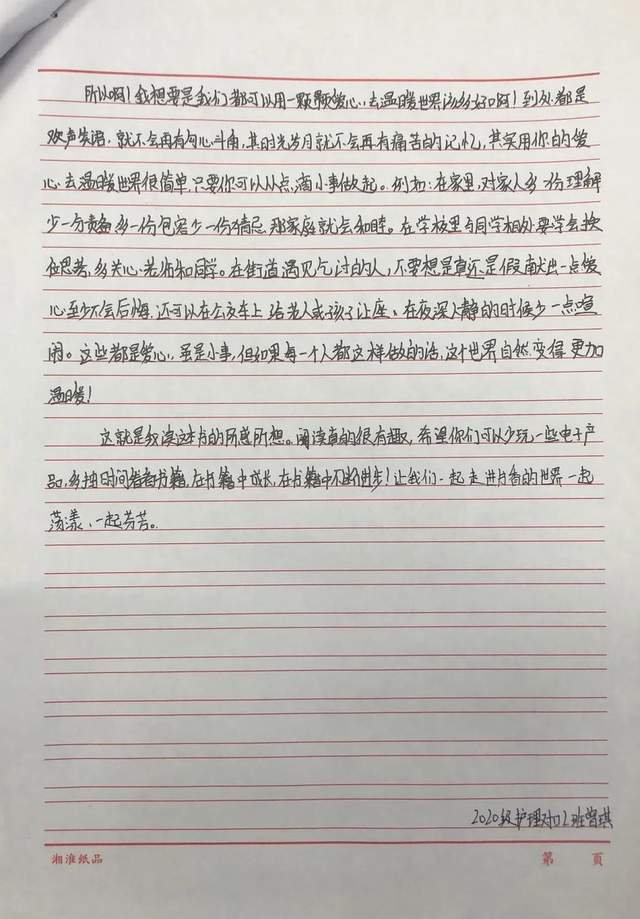 所以啊！我想要是我们都可以用一颗颗爱心，去温暖世界该多好啊！到处都是
欢声笑语，就不会再有勾心斗角，其时光岁月就不会再有痛苦的记忆，其实用你的爱
心去温暖世界很简单，只要你可以从点滴小事做起。例如：在家里，对家人多一份理解
少一分责备，多一份包容少一份猜忌，那家庭就会和睦。在学校里与同学相处要学会换
位思考，多关心老师和同学。在街道遇见乞讨的人，不要想是真还是假，献出一点爱
心至少不会后悔，还可以在公交车上给老人或孩子让座、在夜深人静的时候少一点喧
闹。这些都是爱心，虽是小事，但如果每一个人都这样做的话，这个世界自然变得更加
温暖！
这就是我读这本书的所感所想。阅读真的很有趣，希望你们可以少玩一些电子产
品，多抽时间看看书籍，在书籍中成长，在书籍中不断进步！让我们一起走进书香的世界一起
荡漾、一起芬芳。
2020级护理对口2班曾琪
湘淮纸品
第 页